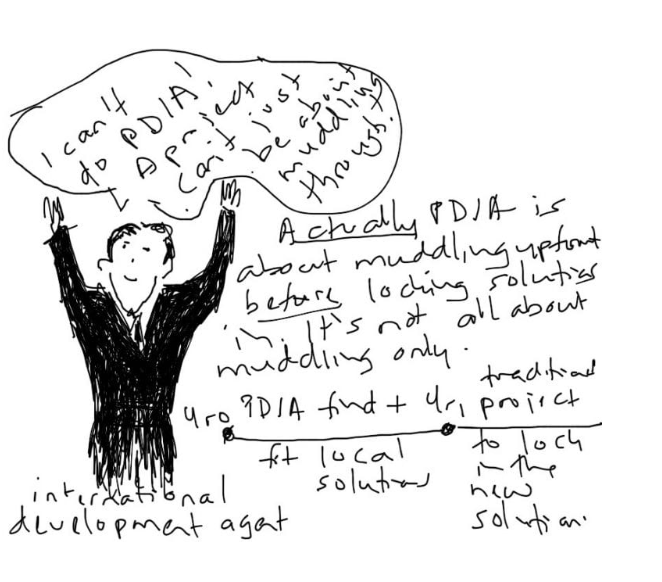 I can't
do PDIA!
A project
can't just
be about
muddling
through.
Actually PDIA is
about muddling upfront
before locking solutions
in. It's not all about
muddling only.
yr0 PDIA find + yr1
fit local
solutions
traditional
project
to lock
in the
new
solution.
international
development agent